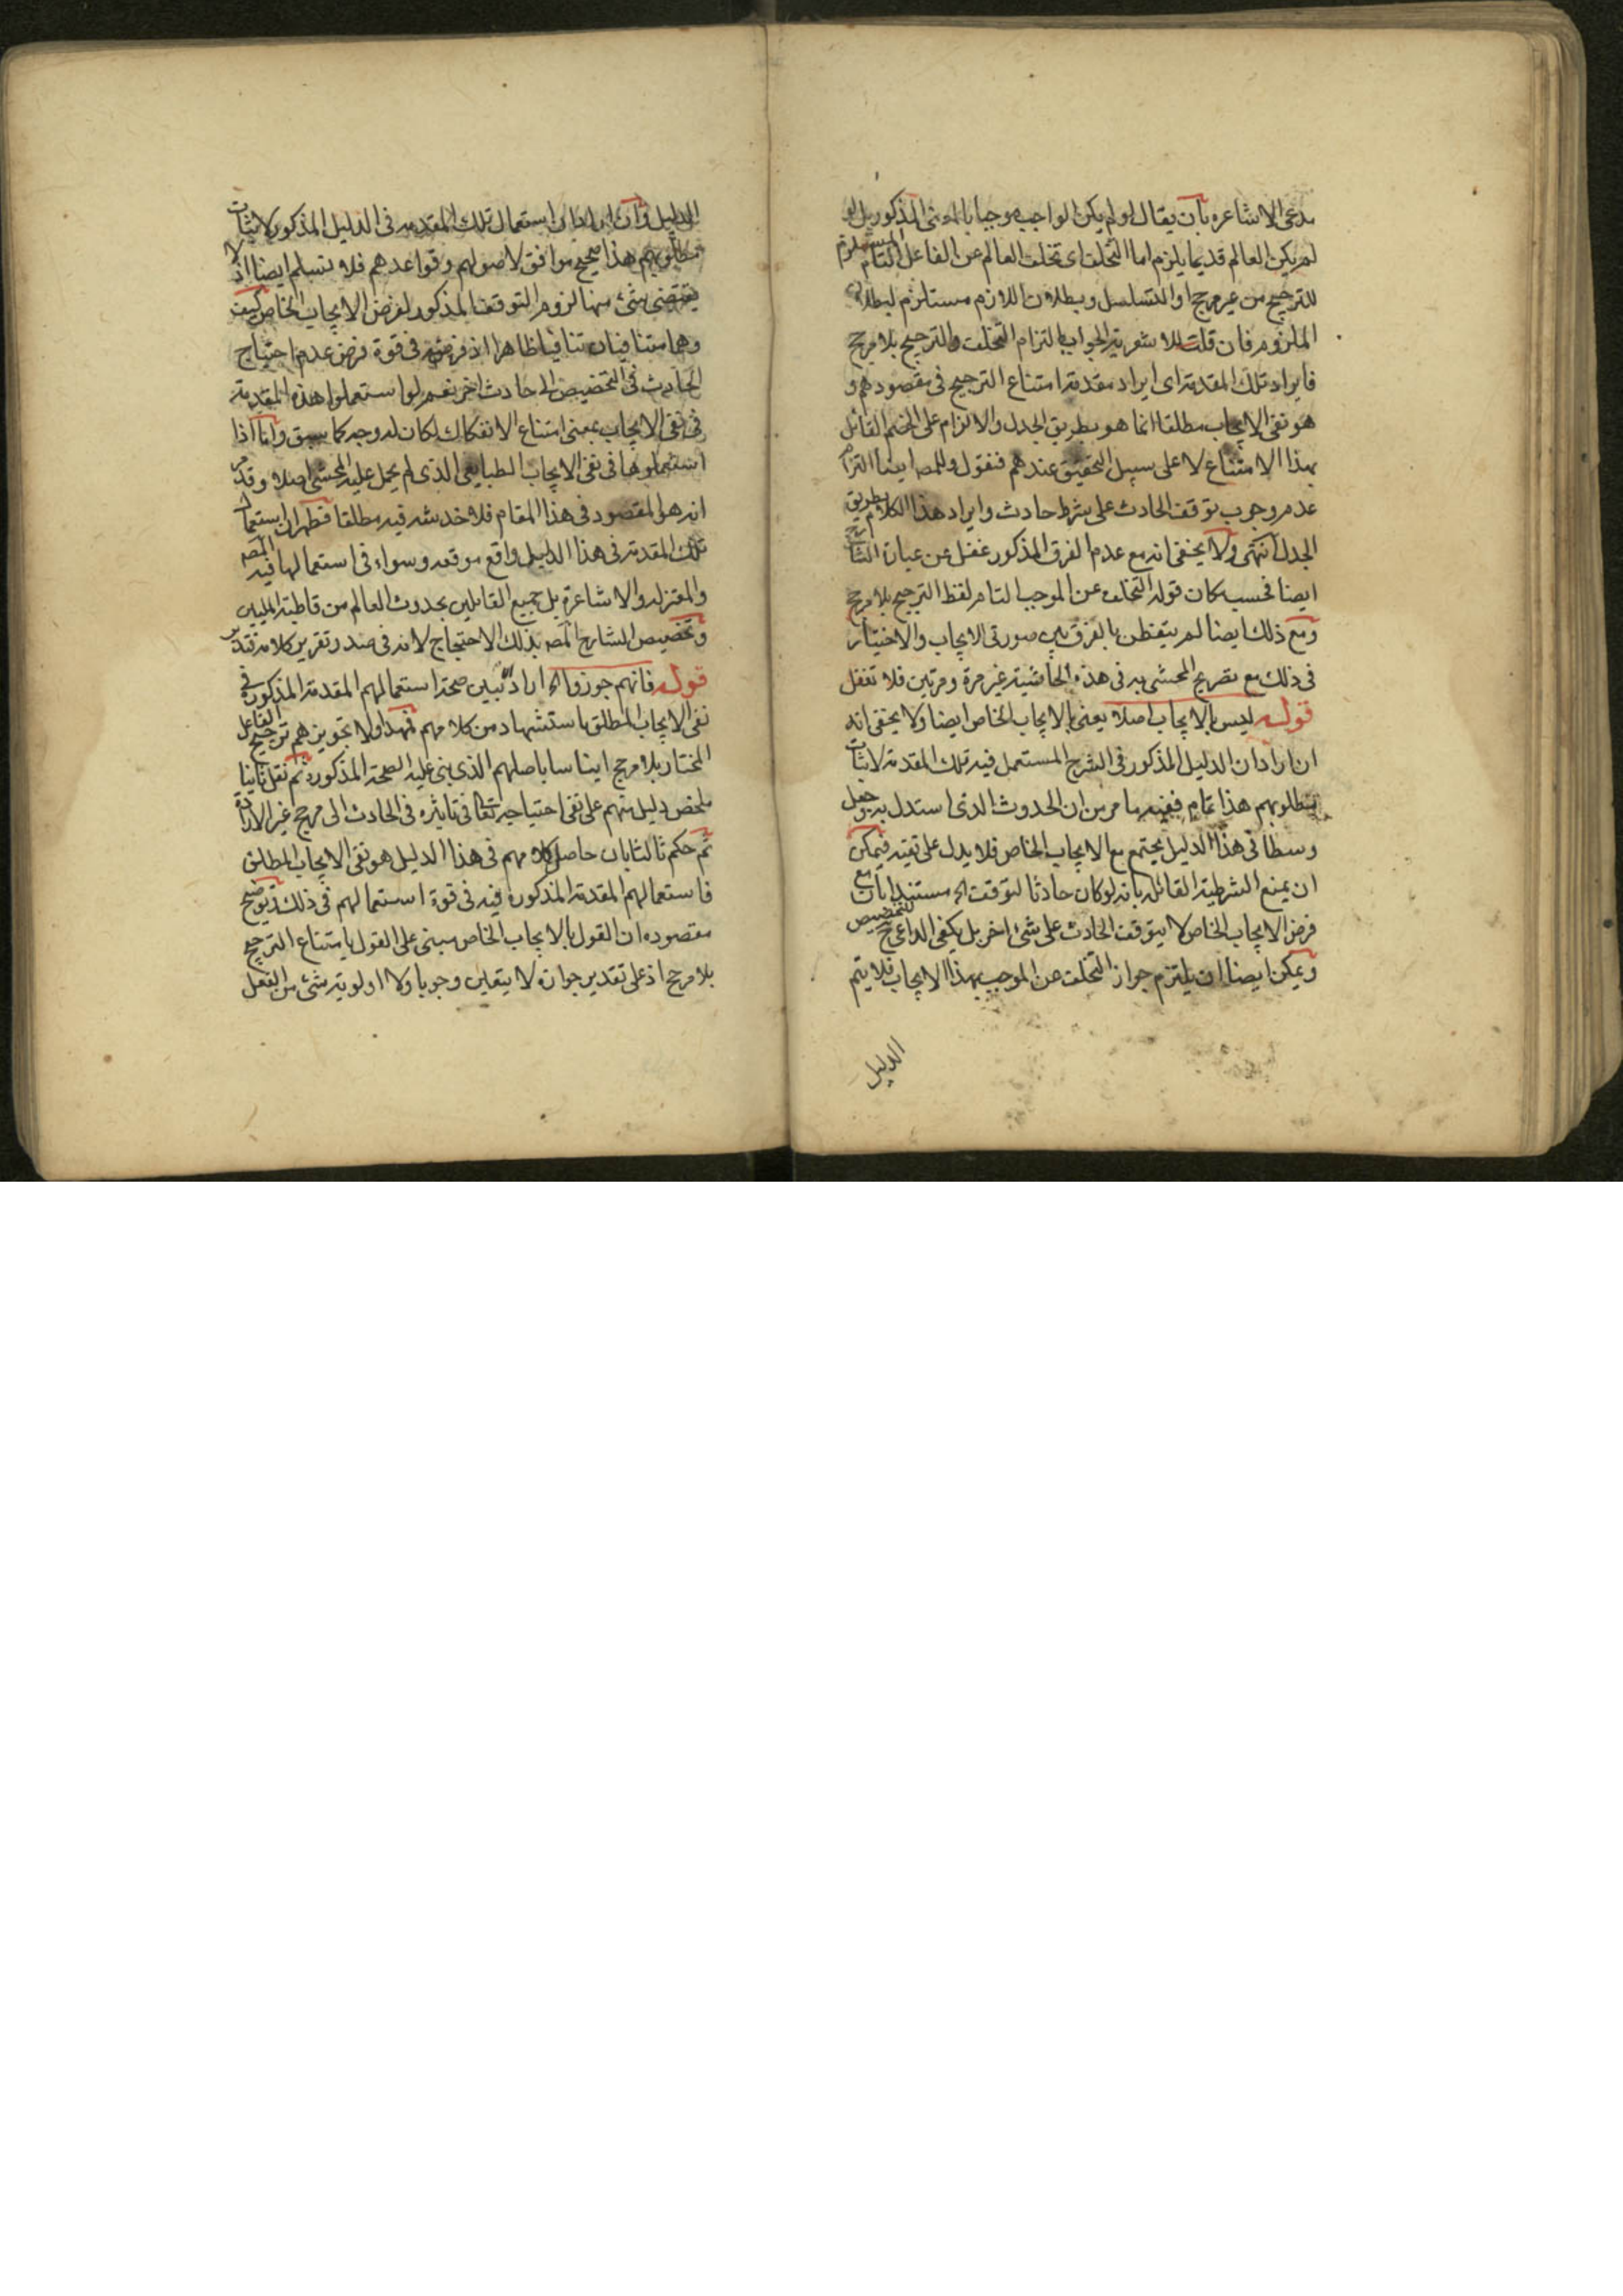 مدعى الاشاعره بان يقال لو لم يكن الواجب موجبا بالمعنى المذكور بل لو
لم يكن العالم قديما يلزم اما التخلف اى تخلف العالم عن الفاعل التام المستلزم
للترجيح من غير مرجح او التسلسل وبطلان اللازم مستلزم لبطلان
الملزوم فان قلت للاشعرية الجواب بالتزام التخلف والترجيح بلا مرجح
فايراد تلك المقدمة اى ايراد مقدمة امتناع الترجيح فى مقصودهم و
هو نفى الايجاب مطلقا انما هو بطريق الجدل والالزام على الخصم القائل
بهذا الامتناع لا على سبيل التحقيق عندهم فنقول وللمصـ ايضا التزام
عدم وجوب توقف الحادث على شرط حادث وايراد هذا الكلام بطريق
الجدل انتهى ولا يخفى انه مع عدم الفرق المذكور غفل عن عبارة الشارح
ايضا فحسب كان قوله التخلف عن الموجب التام لفظ الترجيح بلا مرجح
ومع ذلك ايضا لم يتفطن بالفرق بين صورتى الايجاب والاختيار
فى ذلك مع تصريح المحشى به فى هذه الحاشية غير مرة ومرتين فلا تغفل
قوله ليس بالايجاب اصلا يعنى بالايجاب الخاص ايضا ولا يخفى انه
ان اراد ان الدليل المذكور فى الشرح المستعمل فيه تلك المقدمة لاثبات
مطلوبهم هذا تمام ففيه ما مر من ان الحدوث الذى استدل به وجعل
وسطا فى هذا الدليل يجتمع مع الايجاب الخاص فلا يدل على نفيه فيمكن
ان يمنع الشرطية القائلة بانه لو كان حادثا لتوقف الخ مستندا بان مع
فرض الايجاب الخاص لا يتوقف الحادث على شئ اخر بل يكفى الداعى للتخصيص
ويمكن ايضا ان يلتزم جواز التخلف عن الموجب بهذا الايجاب فلا يتم
الدليل
الدليل وان اراد ان استعمال تلك المقدمة فى الدليل المذكور لاثبات
مطلوبهم هذا صحيح موافق لاصولهم وقواعدهم فلا نسلم ايضا اذ لا
يقتضى شئ منها لزوم التوقف المذكور لفرض الايجاب الخاص كيف
وهما متنافيان تنافيا ظاهرا اذ فرضه فى قوة فرض عدم احتياج
الحادث فى التخصيص الى حادث اخر نعم لو استعملوا هذه المقدمة
فى نفى الايجاب بمعنى امتناع الانفكاك لكان له وجه كما سبق واما اذا
استعملوها فى نفى الايجاب الطبايعى الذى لم يحمل عليه المحشى اصلا وقد مر
انه هو المقصود فى هذا المقام فلا خدشة فيه مطلقا فظهر ان استعمال
تلك المقدمة فى هذا الدليل واقع موقعه وسواء فى استعمالها فيه المصـ
والمعتزلة والاشاعرة بل جميع القائلين بحدوث العالم من قاطبة المليين
وتخصيص الشارح المصـ بذلك الاحتجاج لانه فى صدد تقرير كلامه فتدبر
قوله فانهم جوزوا الخ اراد تبيين صحة استعمالهم المقدمة المذكورة فى
نفى الايجاب المطلق باستشهاد من كلامهم فمهد اولا تجويزهم ترجيح الفاعل
المختار بلا مرجح ايناسا باصلهم الذى بنى عليه الصحة المذكورة ثم نقل ثانيا
ملخص دليل منهم على نفى احتياجه تعالى فى تاثيره فى الحادث الى مرجح غير الارادة
ثم حكم ثالثا بان حاصل كلامهم فى هذا الدليل هو نفى الايجاب المطلق
فاستعمالهم المقدمة المذكورة فيه فى قوة استعمالهم فى ذلك توضيح
مقصوده ان القول بالايجاب الخاص مبنى على القول بامتناع الترجيح
بلا مرجح اذ على تقدير جوازه لا يتعين وجوبا ولا اولوية شئ من الفعل